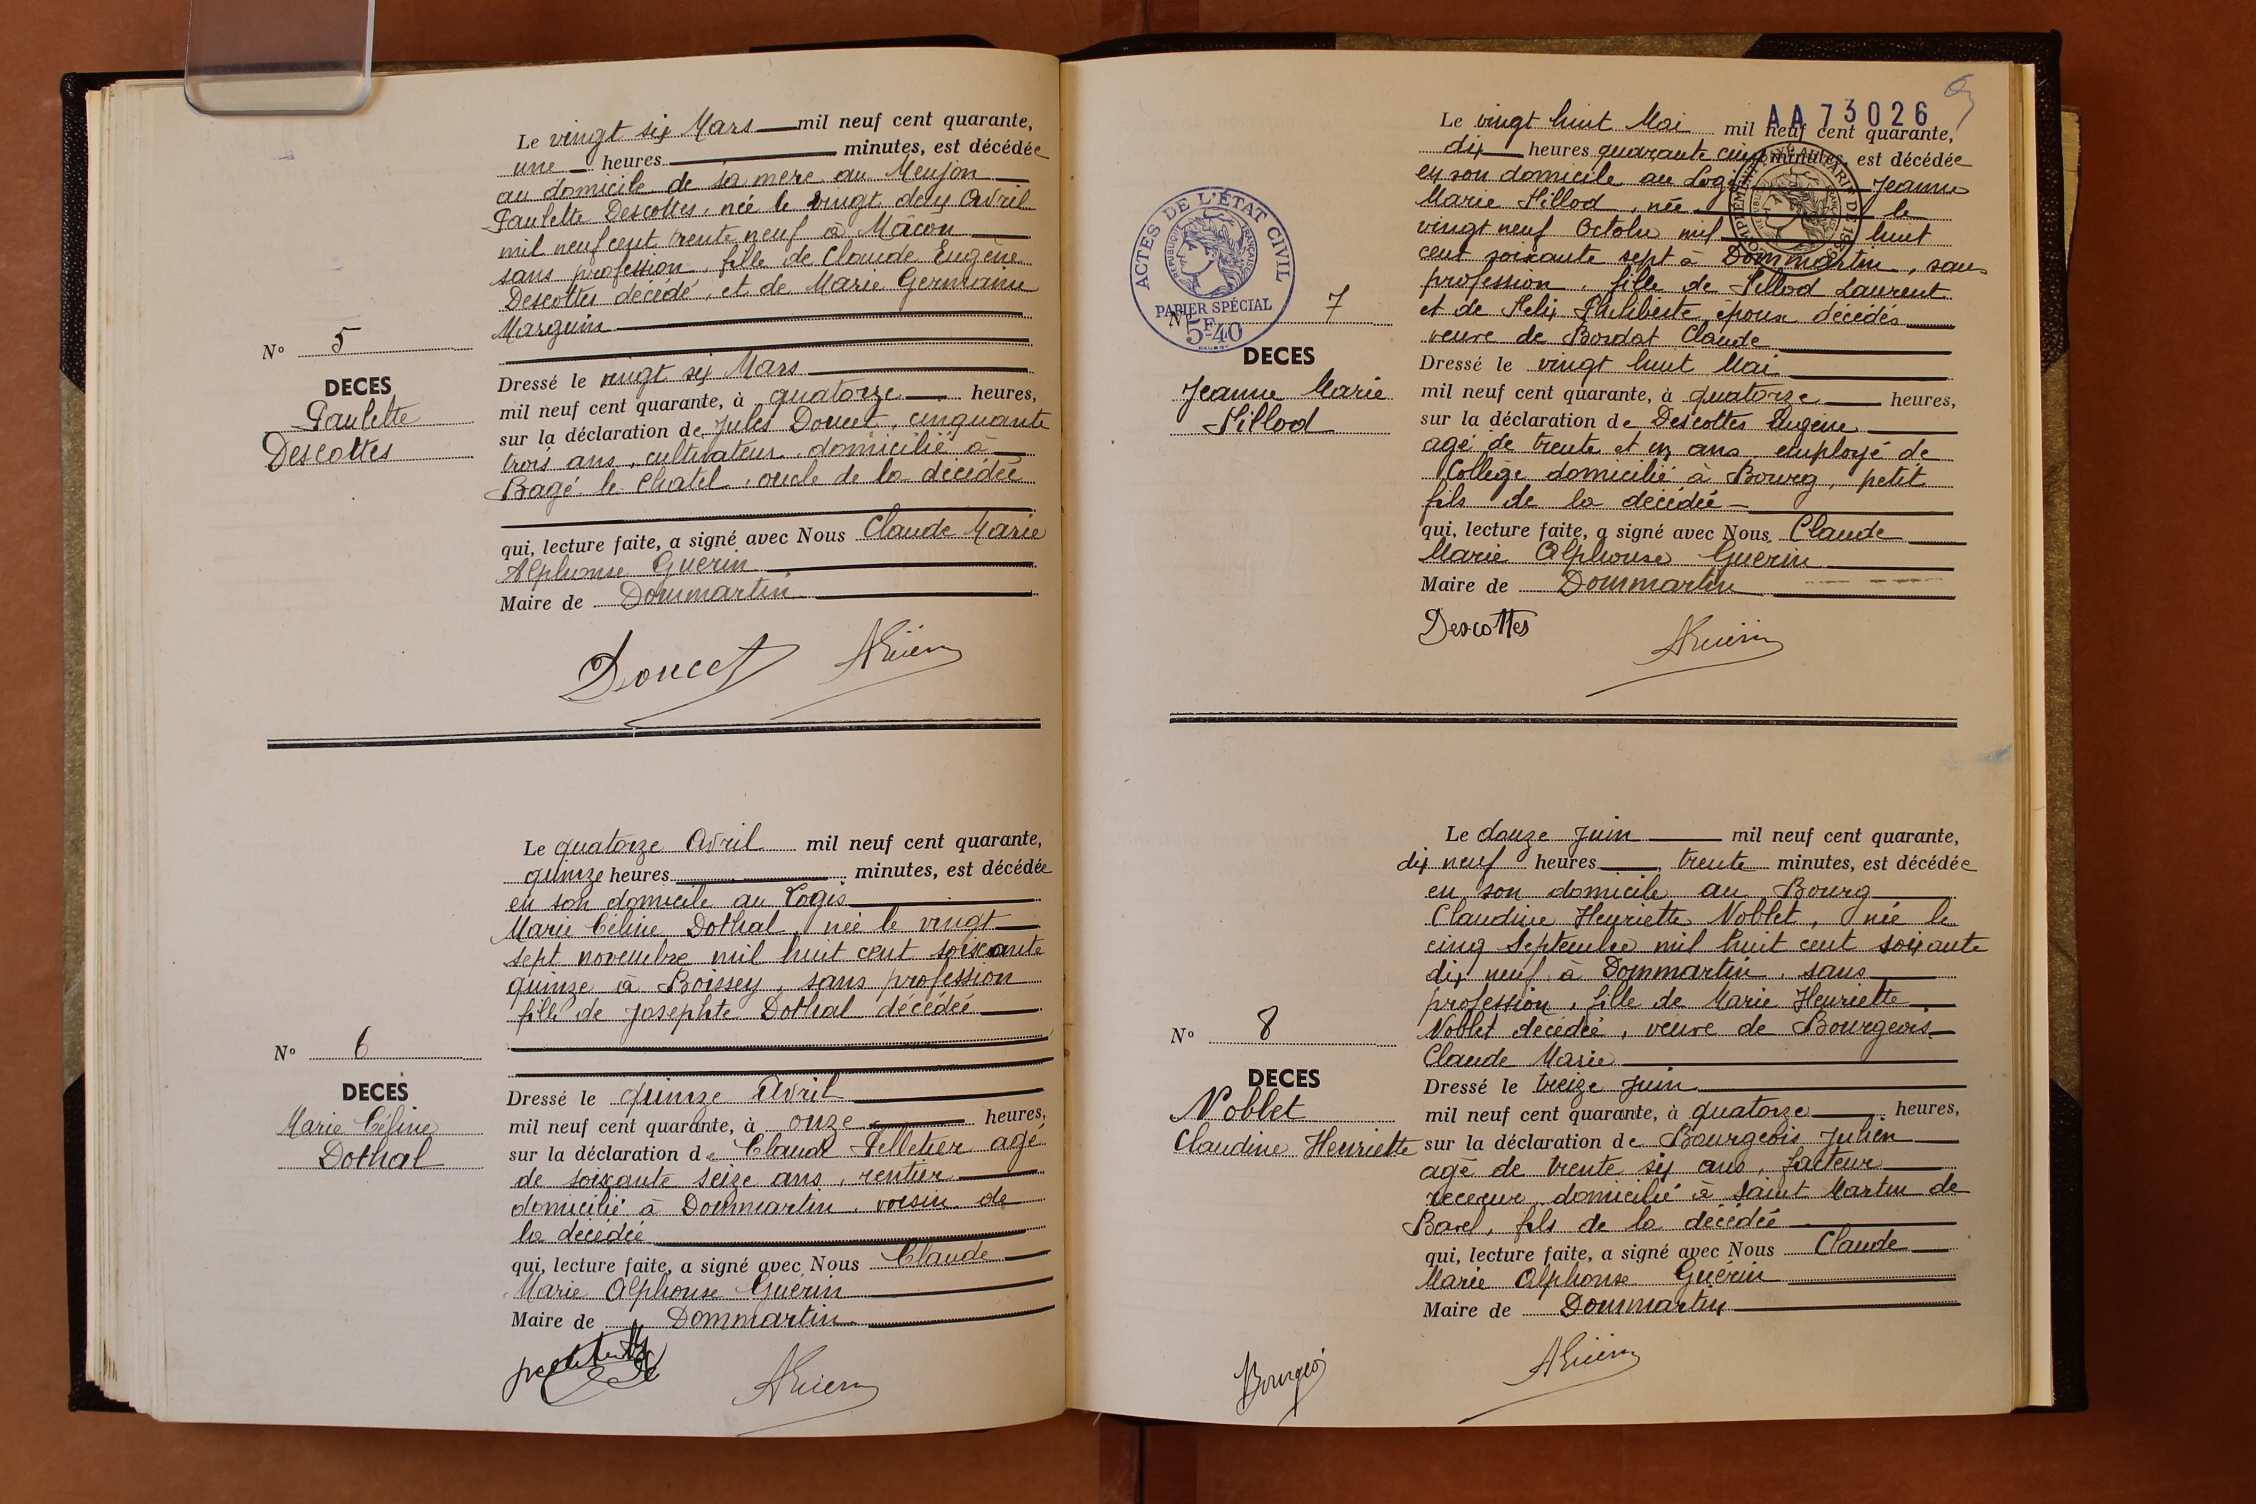 Le vingt six Mars mil neuf cent quarante,
une heures minutes, est décédée
au domicile de sa mère au Meujon
Paulette Descottes, née le vingt deux Avril
mil neuf cent trente neuf à Mâcon
sans profession, fille de Claude Eugène
Descottes décédé, et de Marie Germaine
Marguin
N° 5
DECES
Paulette
Descottes
Dressé le vingt six Mars
mil neuf cent quarante, à quatorze heures,
sur la déclaration de Jules Doucet, cinquante
trois ans, cultivateur domicilié à
Bagé le Chatel, oncle de la décédée
qui, lecture faite, a signé avec Nous Claude Marie
Alphonse Guerin
Maire de Dommartin
Doucet AGuérin
Le quatorze Avril mil neuf cent quarante,
quinze heures minutes, est décédée
en son domicile au Logis
Marie Céline Dothal née le vingt
sept novembre mil huit cent soixante
quinze à Boissey, sans profession
fille de Josephte Dothal décédée
N° 6
DECES
Marie Céline
Dothal
Dressé le quinze Avril
mil neuf cent quarante, à onze heures,
sur la déclaration de Claude Pelletier agé
de soixante seize ans, rentier
domicilié à Dommartin, voisin de
la décédée
qui, lecture faite, a signé avec Nous Claude
Marie Alphonse Guérin
Maire de Dommartin
AGuérin
AA 73026
Le vingt huit Mai mil neuf cent quarante,
dix heures quarante cinq minutes, est décédée
en son domicile au Logis Jeanne
Marie Pillod, née le
vingt neuf Octobre mil huit
cent soixante sept à Dommartin, sans
profession, fille de Pillod Laurent
et de Felix Philiberte, époux décédés
veuve de Bordat Claude
ACTES DE L'ÉTAT CIVIL
RÉPUBLIQUE FRANÇAISE
PAPIER SPÉCIAL
5F40
N° 7
DECES
Jeanne Marie
Pillod
Dressé le vingt huit Mai
mil neuf cent quarante, à quatorze heures,
sur la déclaration de Descottes Eugène
agé de trente et un ans, employé de
Collège domicilié à Bourg, petit
fils de la décédée
qui, lecture faite, a signé avec Nous Claude
Marie Alphonse Guerin
Maire de Dommartin
Descottes AGuérin
Le douze Juin mil neuf cent quarante,
dix neuf heures trente minutes, est décédée
en son domicile au Bourg
Claudine Henriette Noblet, née le
cinq Septembre mil huit cent soixante
dix neuf à Dommartin, sans
profession, fille de Marie Henriette
Noblet décédée, veuve de Bourgeois
Claude Marie
N° 8
DECES
Noblet
Claudine Henriette
Dressé le treize Juin
mil neuf cent quarante, à quatorze heures,
sur la déclaration de Bourgeois Julien
agé de trente six ans, facteur
receveur domicilié à Saint Martin de
Bavel, fils de la décédée
qui, lecture faite, a signé avec Nous Claude
Marie Alphonse Guérin
Maire de Dommartin
Bourgeois AGuérin